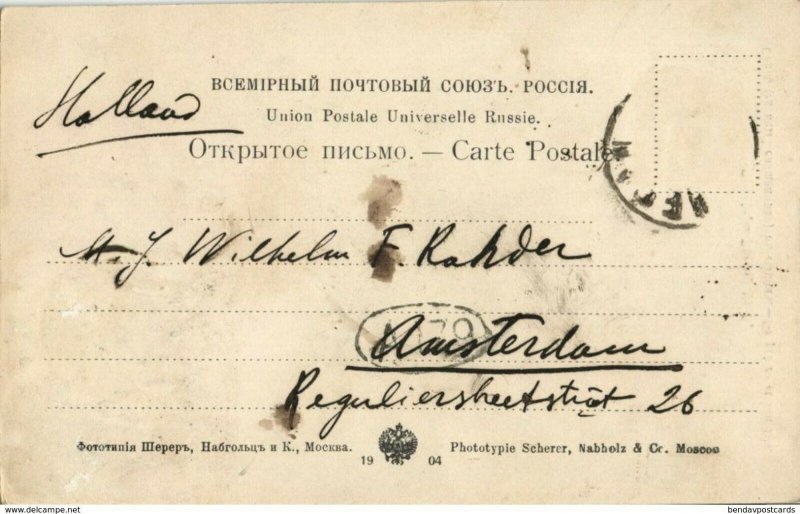 ВСЕМІРНЫЙ ПОЧТОВЫЙ СОЮЗЪ. РОССІЯ.
Holland
Union Postale Universelle Russie.
Открытое письмо. — Carte Postale
J. Wilhelm F. Rahder
Amsterdam
26
Фототипія Шереръ, Набгольцъ и К., Москва.
Phototypie Scherer, Nabholz & Cr. Moscou
19 04
www.hipstamp.com
bendavpostcards